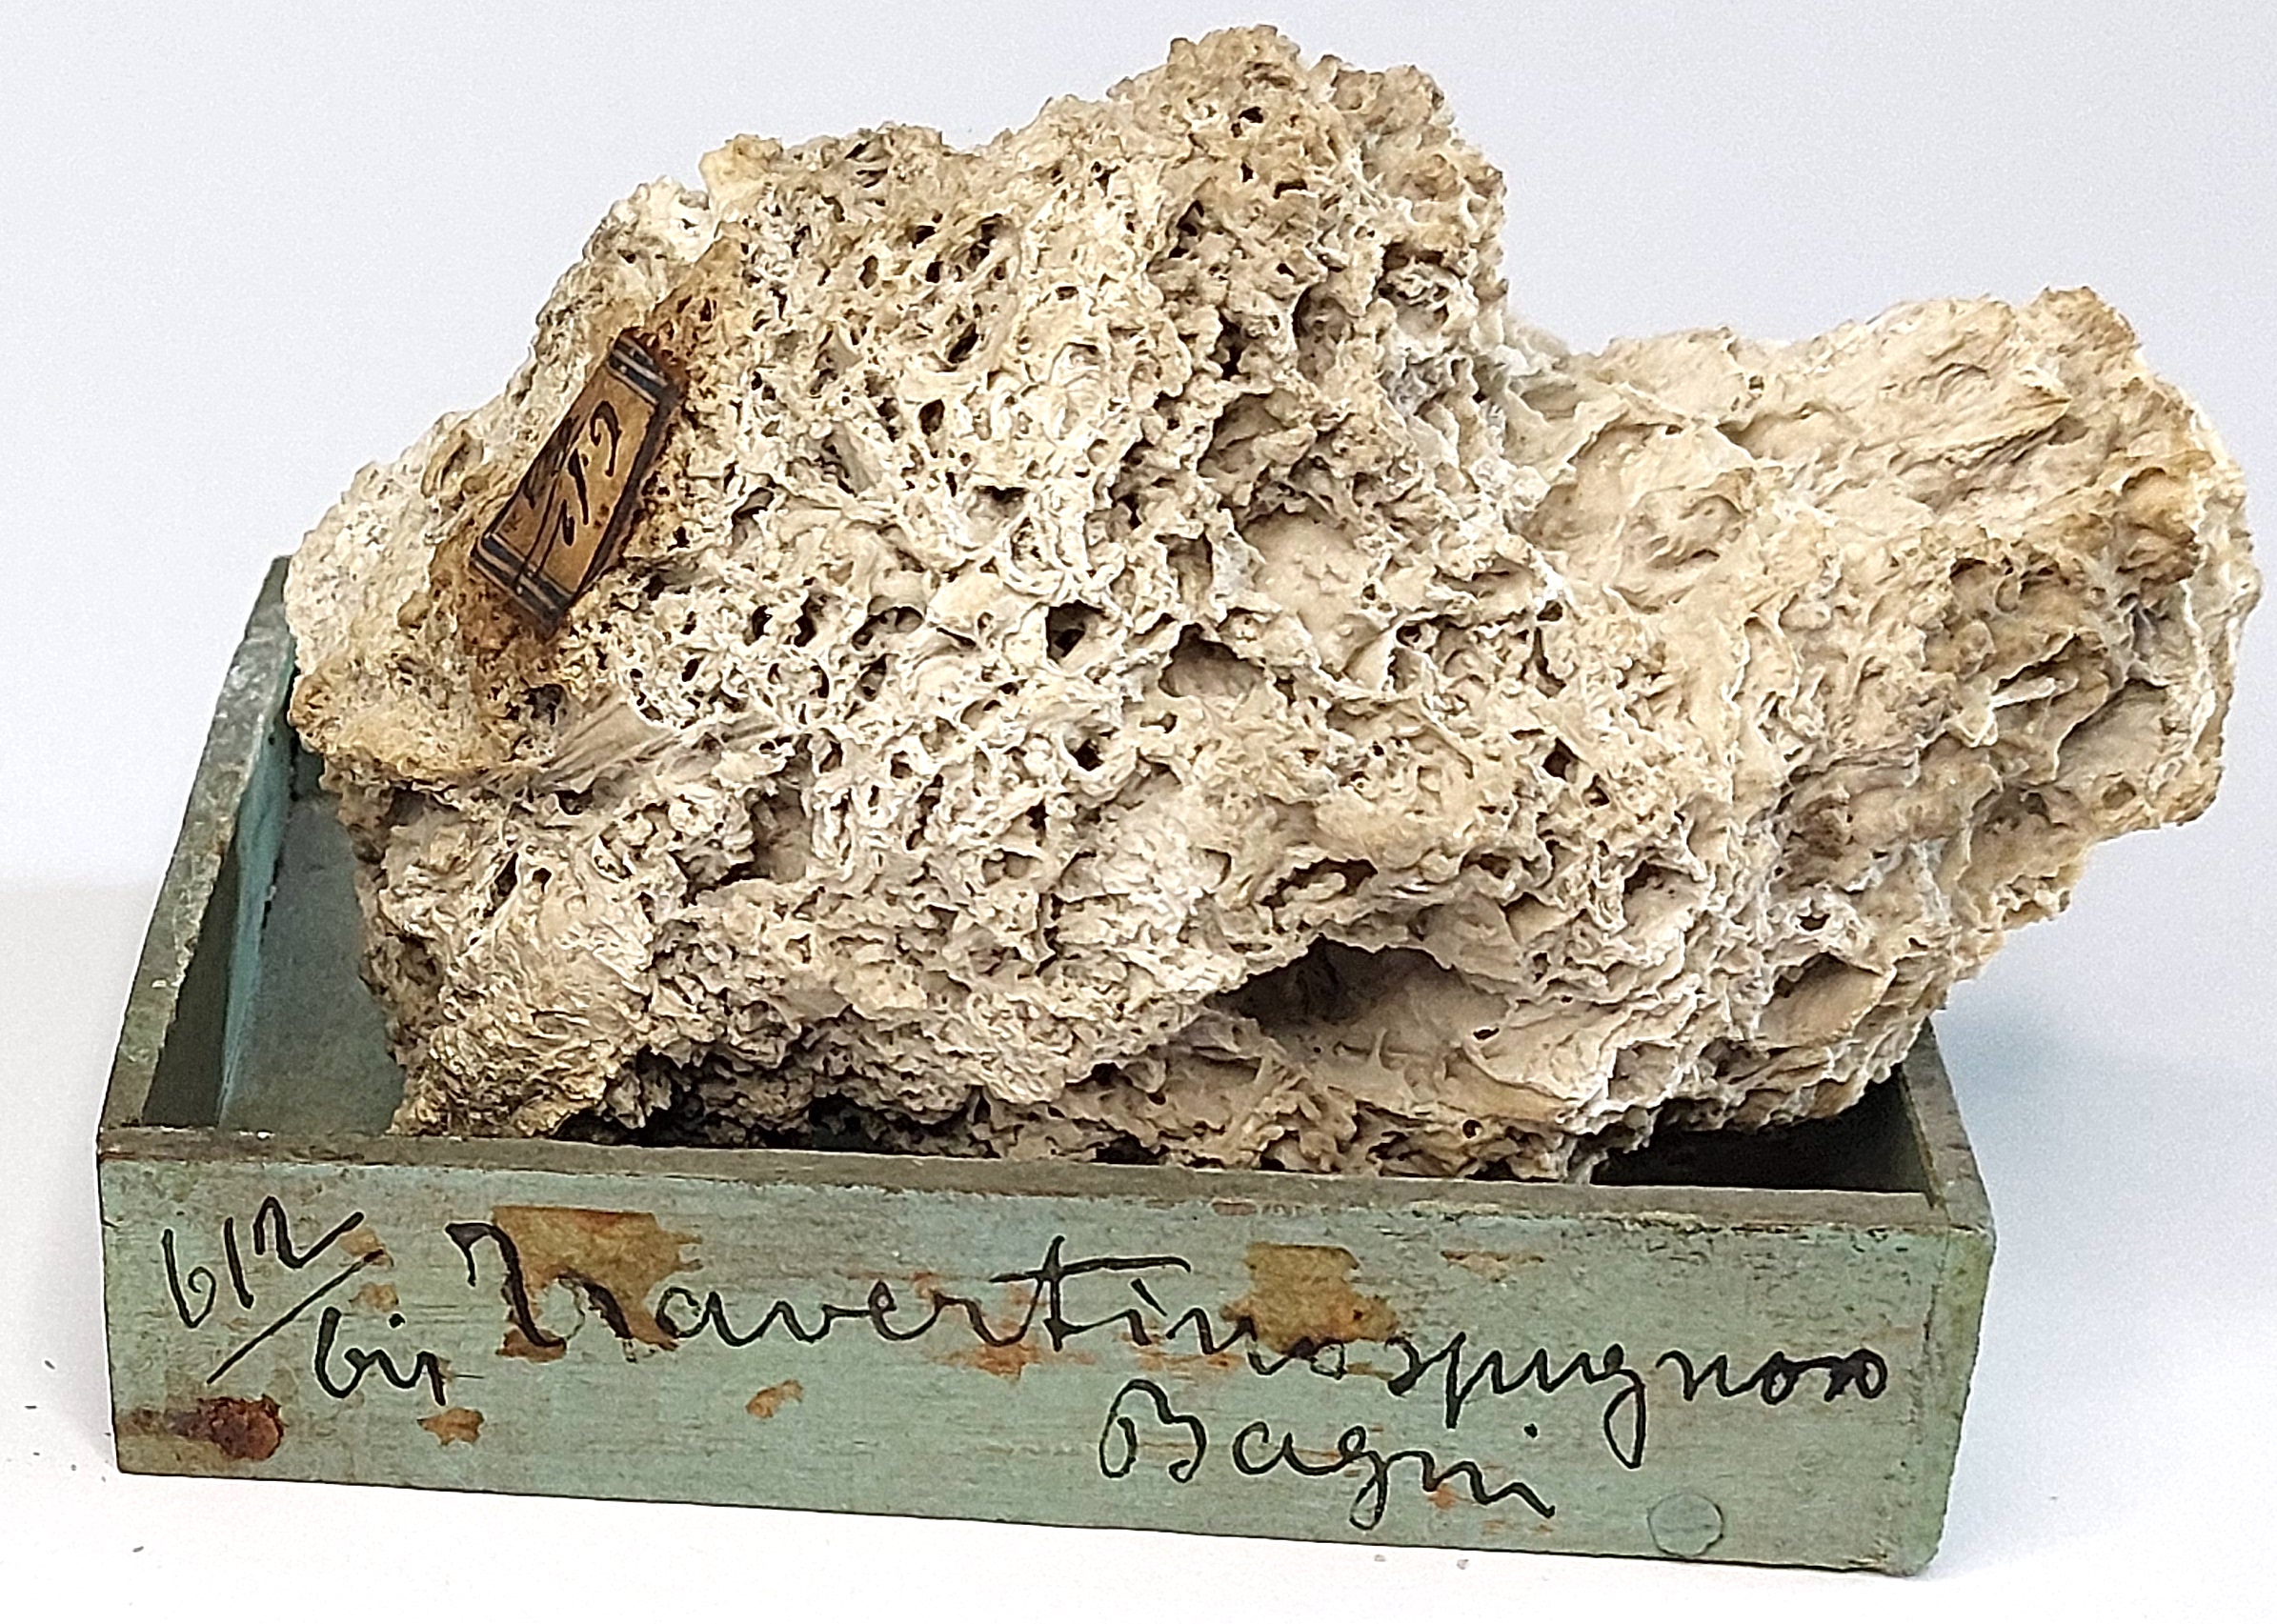 612
612/bis Travertino spugnoso
Bagni